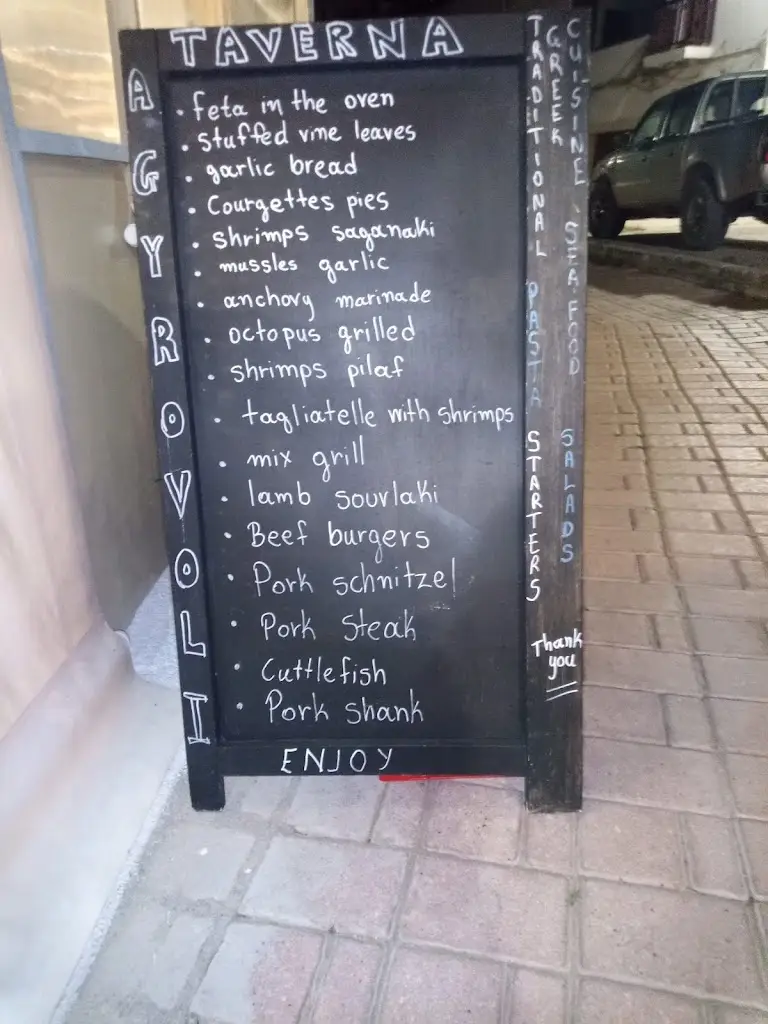 TAVERNA
AGYROVOLI
• feta in the oven
• stuffed vine leaves
• garlic bread
• Courgettes pies
• shrimps saganaki
• mussles garlic
• anchovy marinade
• octopus grilled
• shrimps pilaf
• tagliatelle with shrimps
• mix grill
• lamb souvlaki
• Beef burgers
• Pork schnitzel
• Pork Steak
• Cuttlefish
• Pork shank
ENJOY
TRADITIONAL
GREEK
CUISINE, SEAFOOD
PASTA
SALADS
STARTERS
Thank
you